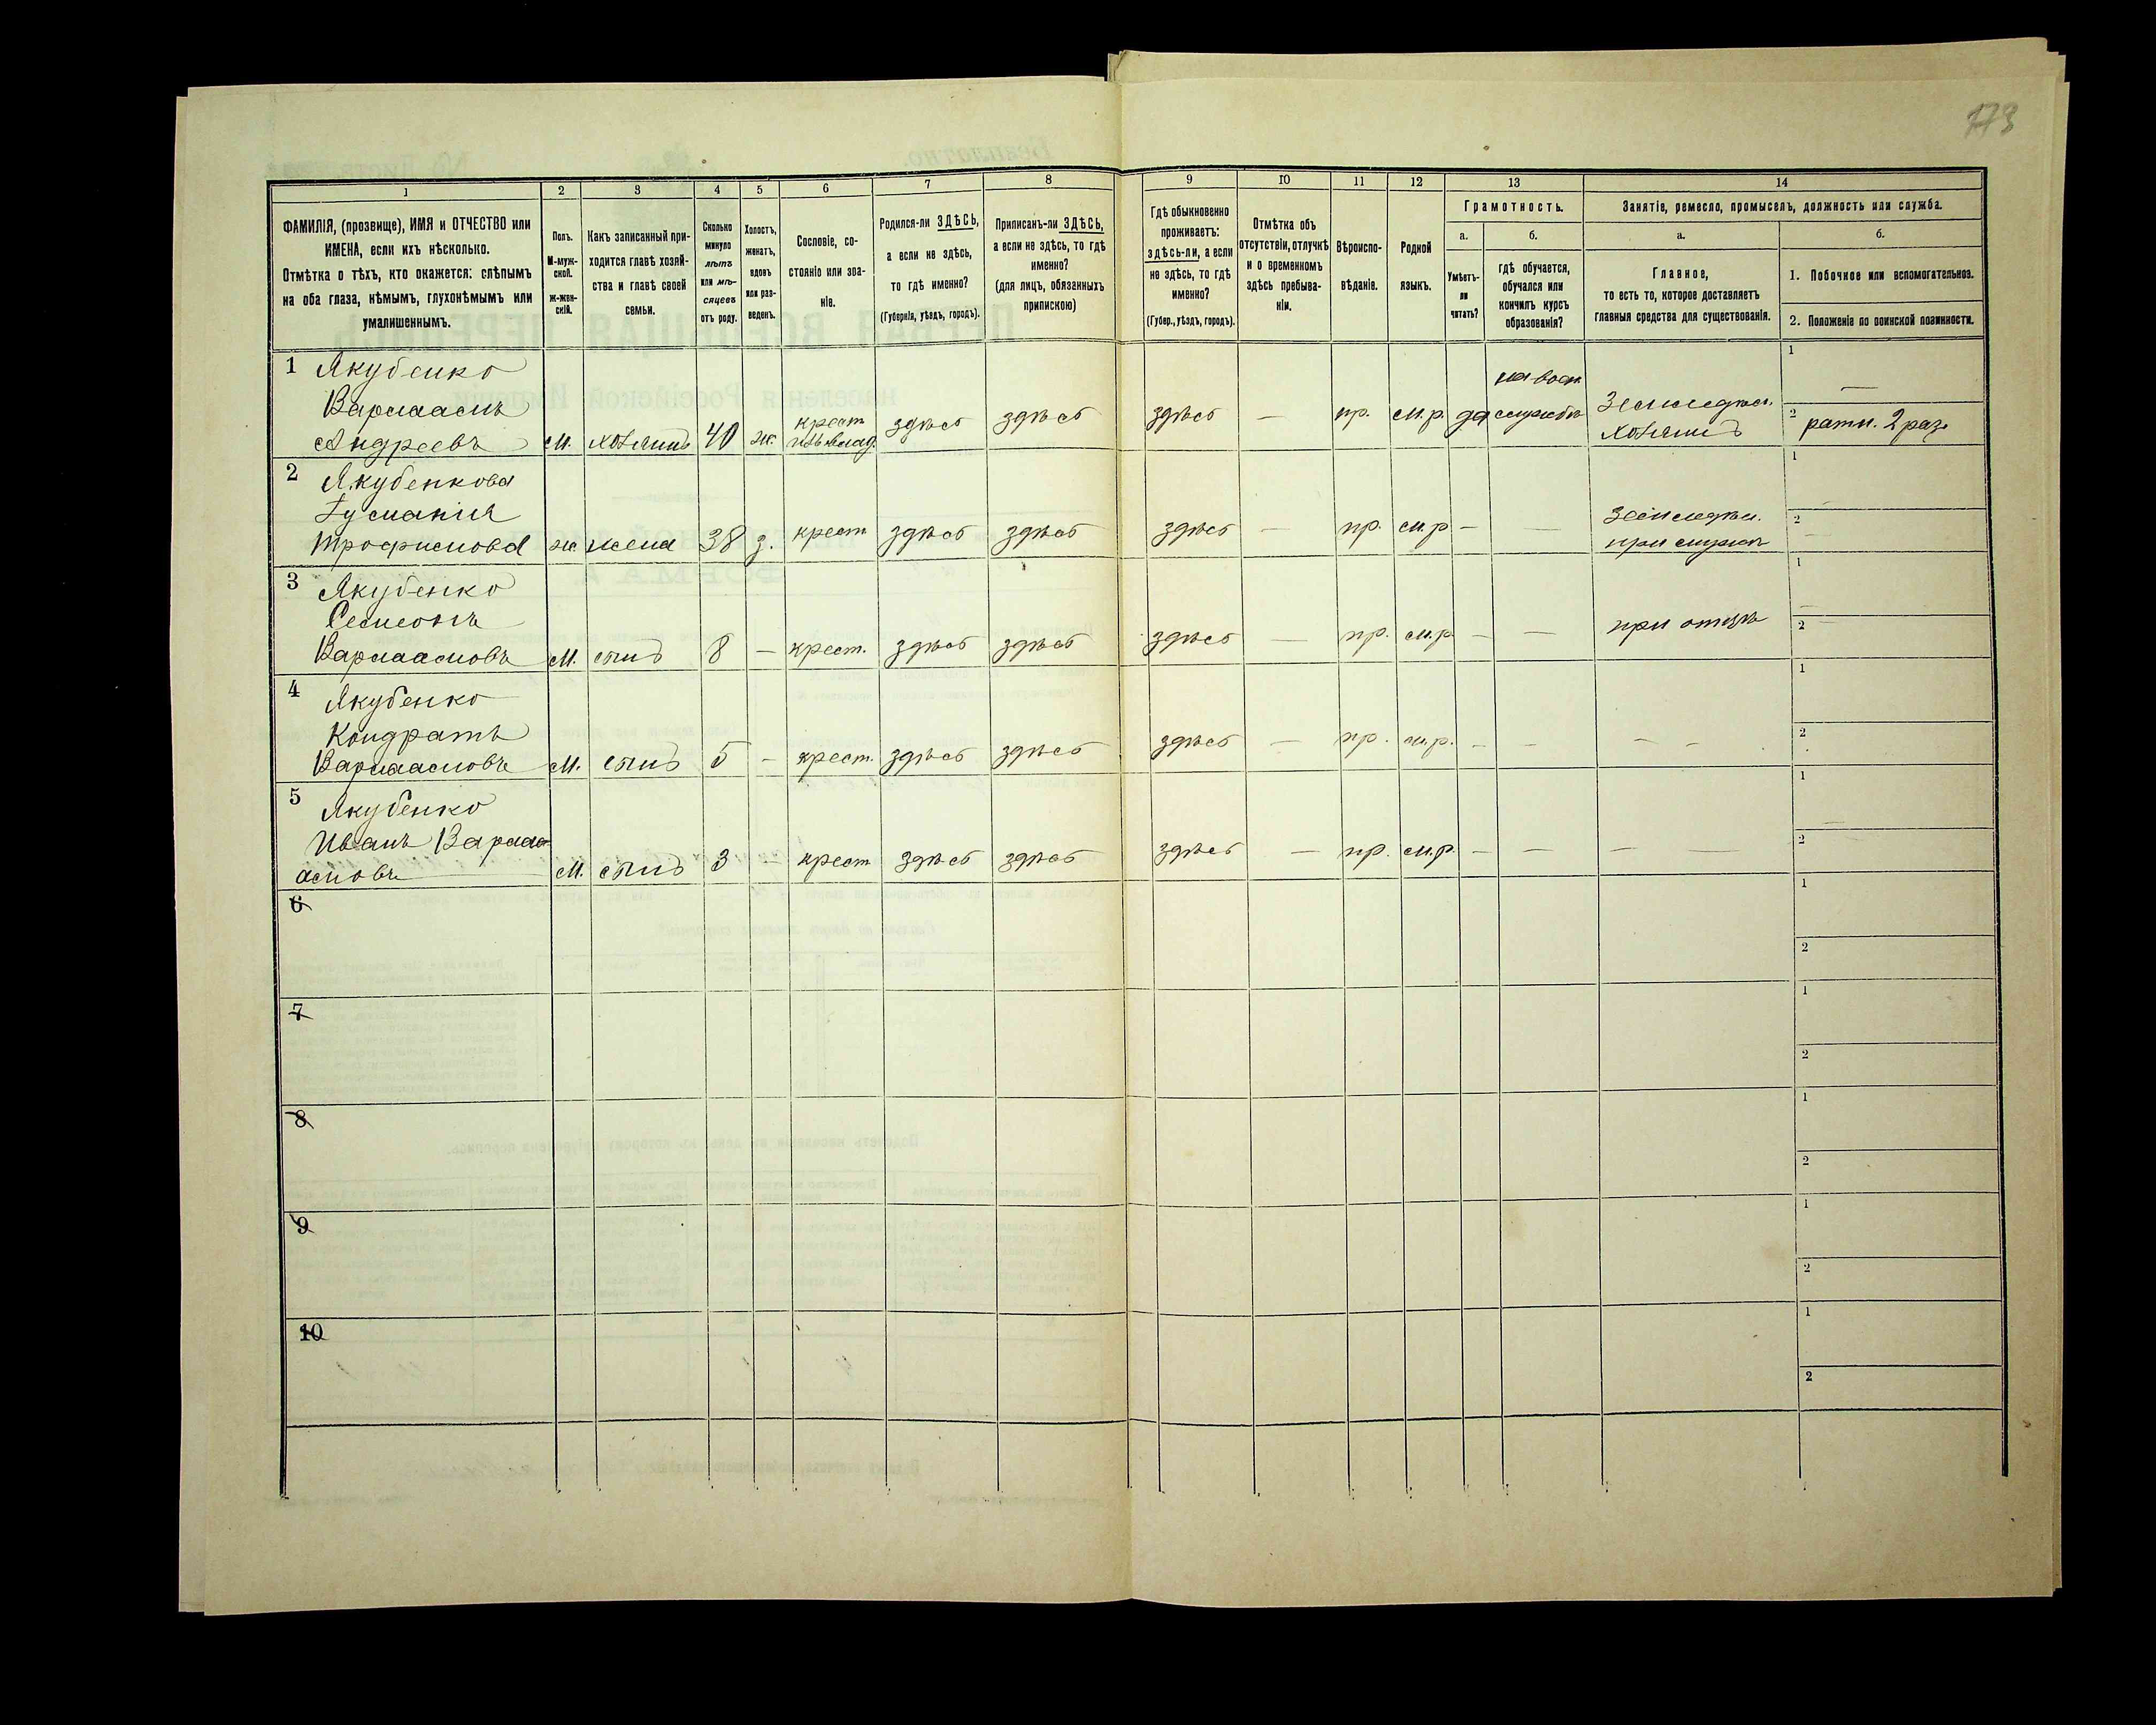 173
1 2 3 4 5 6 7 8 9 10 11 12 13 14
ФАМИЛІЯ, (прозвище), ИМЯ и ОТЧЕСТВО или
ИМЕНА, если ихъ нѣсколько.
Отмѣтка о тѣхъ, кто окажется: слѣпымъ
на оба глаза, нѣмымъ, глухонѣмымъ или
умалишеннымъ.
Полъ.
М-муж-
ской.
ж-жен-
скій.
Какъ записанный при-
ходится главѣ хозяй-
ства и главѣ своей
семьи.
Сколько
минуло
лѣтъ
или мѣ-
сяцевъ
отъ роду.
Холостъ,
женатъ,
вдовъ
или раз-
веденъ.
Сословіе, со-
стояніе или зва-
ніе.
Родился-ли ЗДѢСЬ,
а если не здѣсь,
то гдѣ именно?
(Губернія, уѣздъ, городъ).
Приписанъ-ли ЗДѢСЬ,
а если не здѣсь, то гдѣ
именно?
(для лицъ, обязанныхъ
припискою)
Гдѣ обыкновенно
проживаетъ:
здѣсь-ли, а если
не здѣсь, то гдѣ
именно?
(Губер., уѣздъ, городъ).
Отмѣтка объ
отсутствіи, отлучкѣ
и о временномъ
здѣсь пребыва-
ніи.
Вѣроиспо-
вѣданіе.
Родной
языкъ.
Грамотность.
а.
Умѣетъ-
ли
читать?
б.
гдѣ обучается,
обучался или
кончилъ курсъ
образованія?
Занятіе, ремесло, промыселъ, должность или служба.
а.
Главное,
то есть то, которое доставляетъ
главныя средства для существованія.
б.
1. Побочное или вспомогательное.
2. Положеніе по воинской повинности.
1 Якубенко
Варлаамъ
Андреевъ м. хозяинъ 40 ж. крест. здѣсь здѣсь здѣсь — пр. м.р. да
на воен.
службѣ
Земледѣл.
хозяинъ
1 —
2 ратн. 2 раз.
2 Якубенкова
Трофимова ж жена 38 з. крест здѣсь здѣсь здѣсь — пр. м.р — —
Земледѣл.
при мужѣ
1
2
3 Якубенко
Семеонъ
Варлаамовъ м. сынъ 8 — крест. здѣсь здѣсь здѣсь — пр. м.р — — при отцѣ
1 —
2
4 Якубенко
Кондратъ
Варлаамовъ м. сынъ 5 — крест. здѣсь здѣсь здѣсь — пр. м.р. — — — —
1
2
5 Якубенко
Иванъ Варла-
амовъ м. сынъ 3 — крест здѣсь здѣсь здѣсь — пр. м.р. — — — —
1 —
2
6
1
2
7
1
2
8
1
2
9
1
2
10
1
2